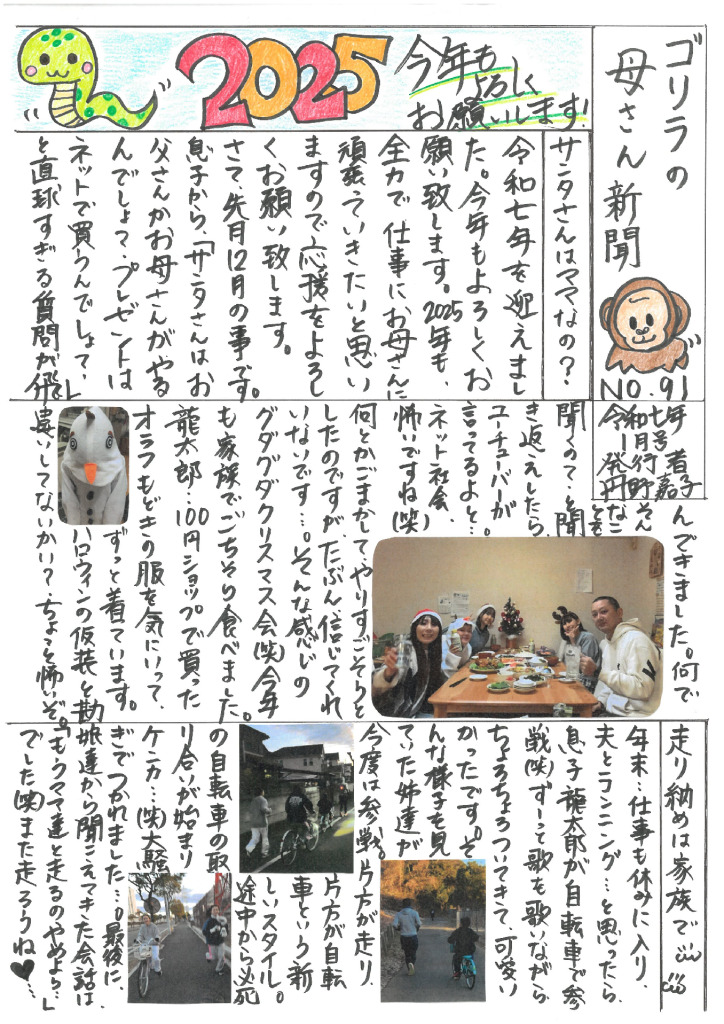 ゴリラの
母さん新聞
NO.91
令和七年
一月号
発行者
丹野嘉子
2025
今年も
よろしく
お願いします!
サンタさんはママなの?
令和七年を迎えまし
た。今年もよろしくお
願い致します。2025年も、
全力で仕事にお母さんに
頑張っていきたいと思い
ますので、応援をよろし
くお願い致します。
さて、先月12月の事です。
息子から、「サンタさんはお
父さんかお母さんがやる
んでしょ?プレゼントは
ネットで買うんでしょ?」
と直球すぎる質問が飛
んできました。何で
そんな
ことを
聞くの?と聞
き返えしたら、
ユーチューバーが
言ってるよと…。
ネット社会、
怖いですね(笑)
何とかごまかしてやりすごそうと
したのですが、たぶん、信じてくれ
いないです…。そんな感じの
グダグダクリスマス会(笑)今年
も家族でごちそう食べました。
龍太郎…100円ショップで買った
オラフもどきの服を気にいって、
ずっと着ています。
ハロウィンの仮装と勘
違いしてないかい?ちょっと怖いぞ。
走り納めは家族で
年末…仕事も休みに入り、
夫とランニング…と思ったら、
息子龍太郎が自転車で参
戦(笑)ずーっと歌を歌いながら
ちょろちょろついてきて、可愛い
かったです。そ
んな様子を見
ていた姉達が
今度は参戦。
片方が走り、
片方が自転
車という新
しいスタイル。
途中から必死
の自転車の取
り合いが始まり
ケンカ…(笑)大騒
ぎでつかれました…。最後に、
娘達から聞こえてきた会話は、
「もうママ達と走るのやめよう…」
でした(笑)また走ろうね♥…